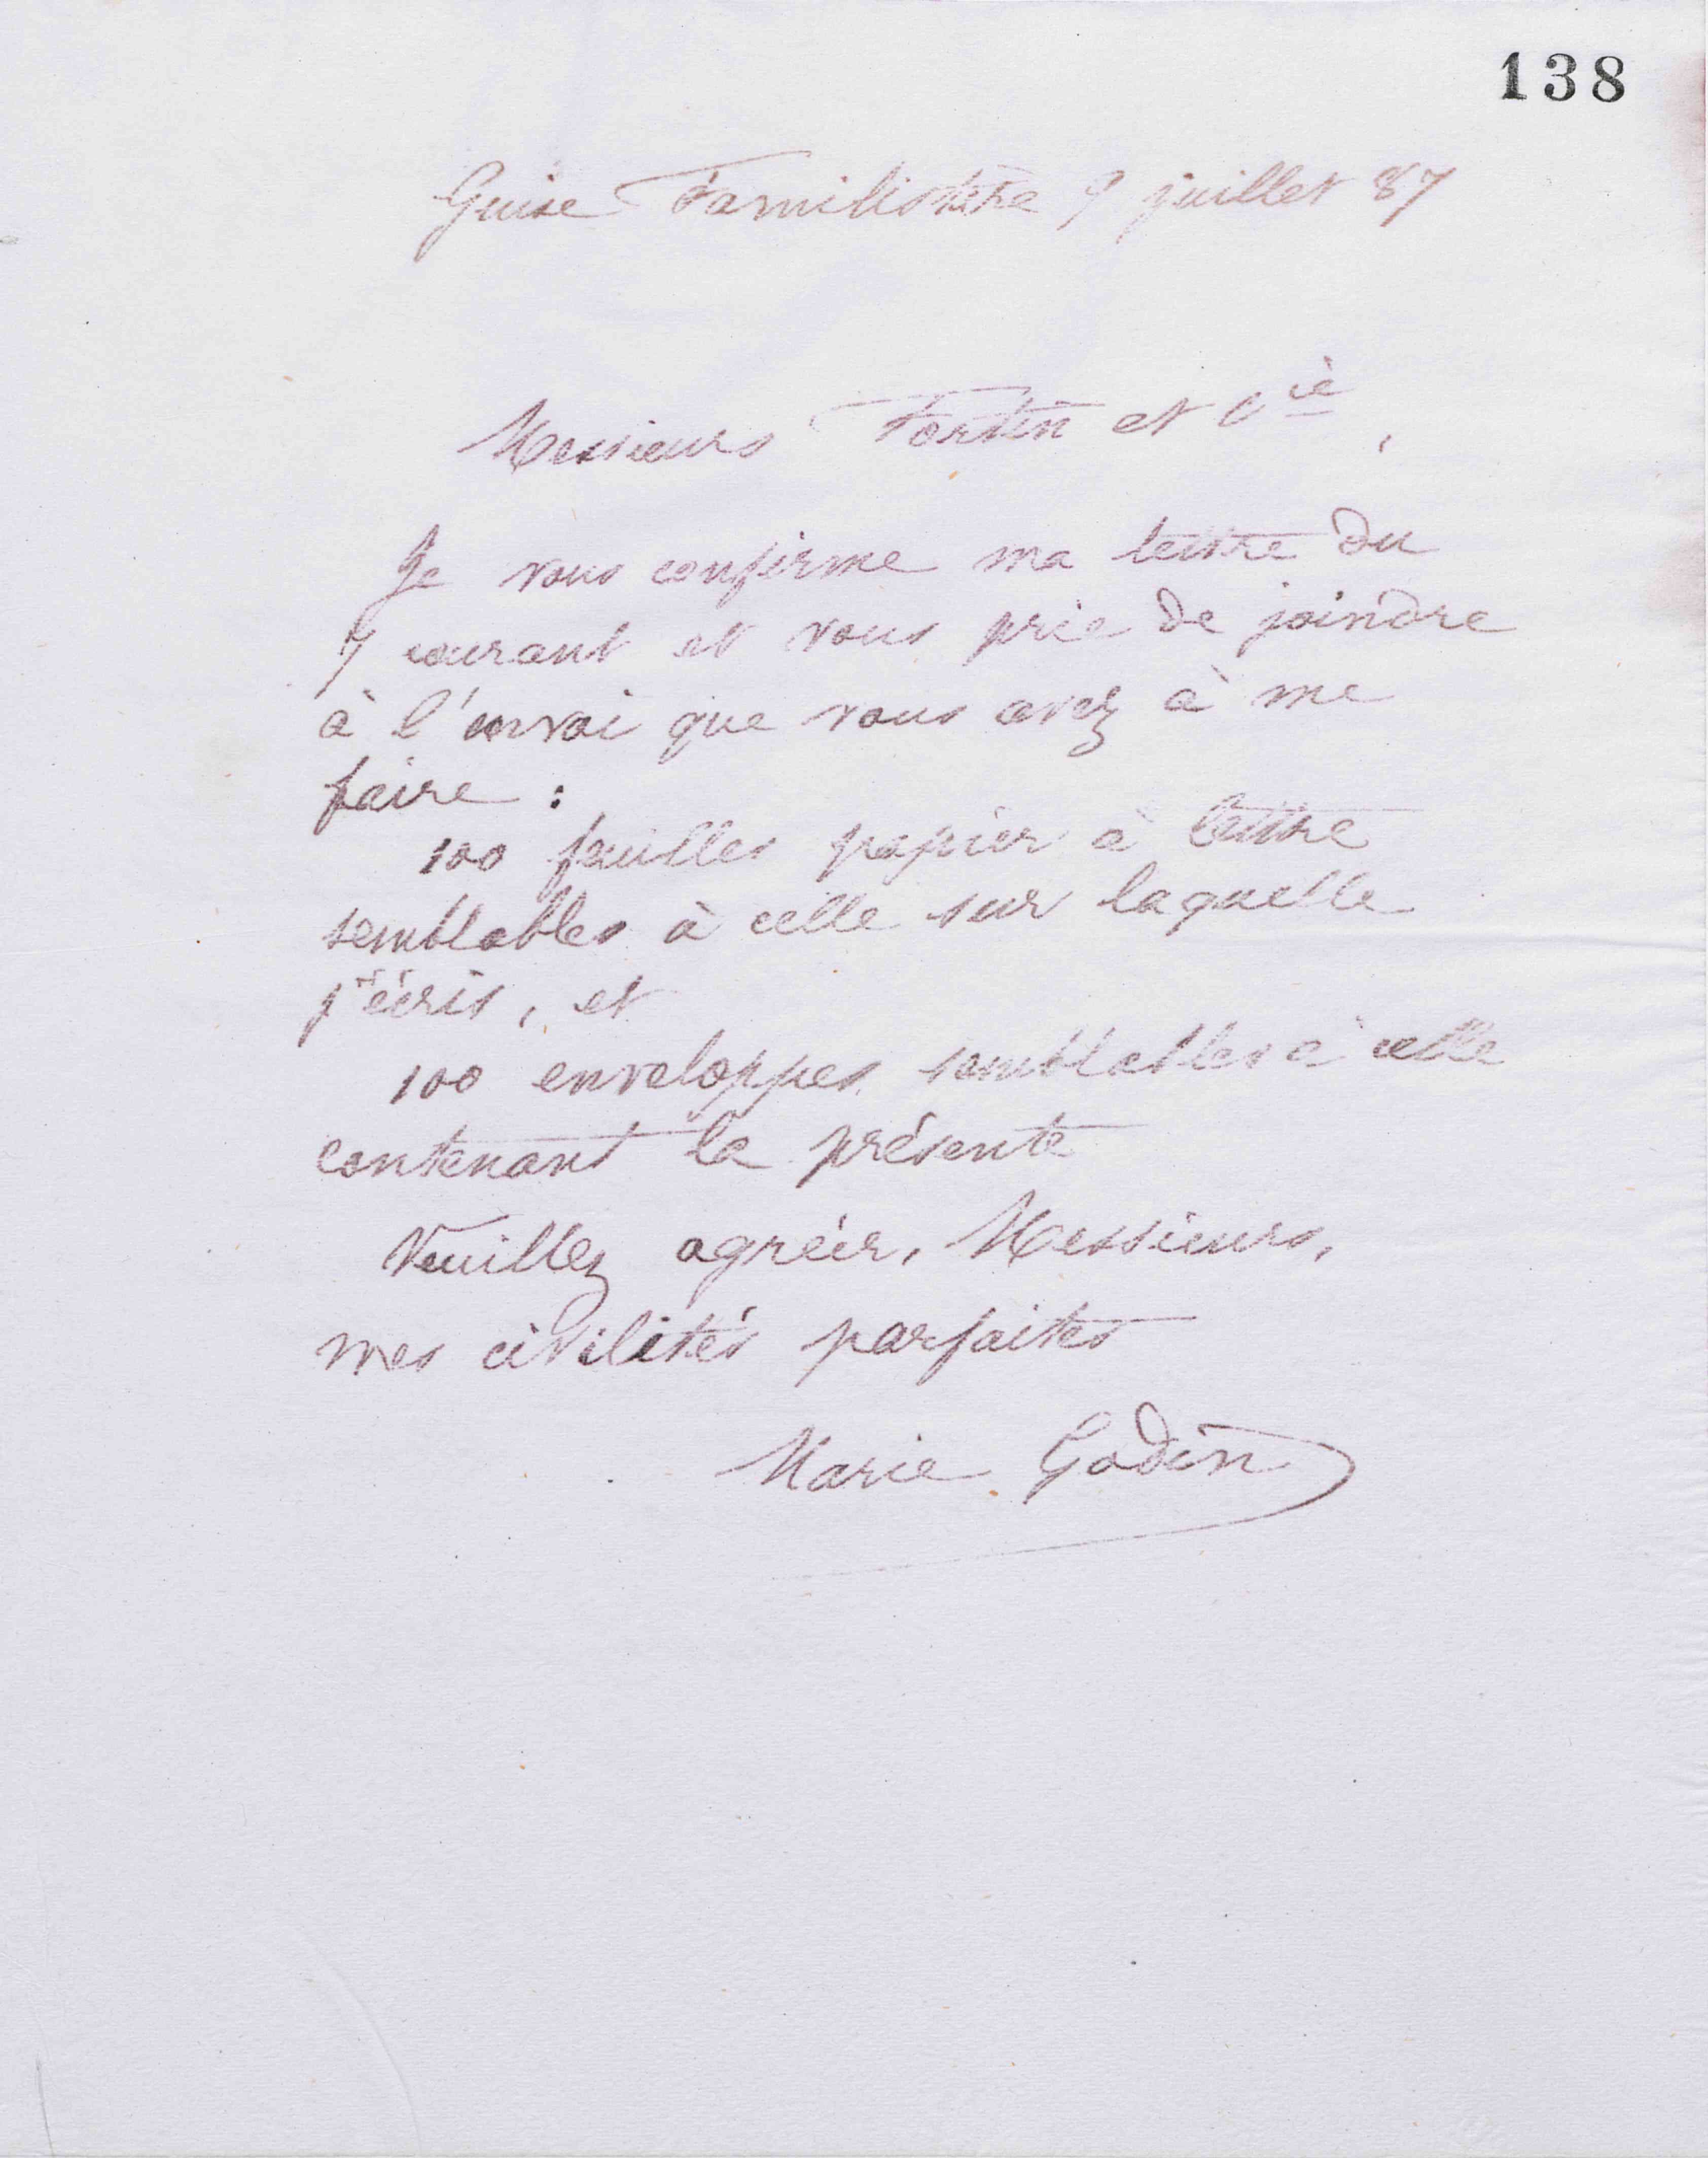 138
Guise Familistère 9 juillet 87
Messieurs Fortin et Cie,
Je vous confirme ma lettre du
7 courant et vous prie de joindre
à l'envoi que vous avez à me
faire :
100 feuilles papier à lettre
semblables à celle sur laquelle
j'écris, et
100 enveloppes semblables à celle
contenant la présente
Veuillez agréer, Messieurs,
mes civilités parfaites
Marie Godin